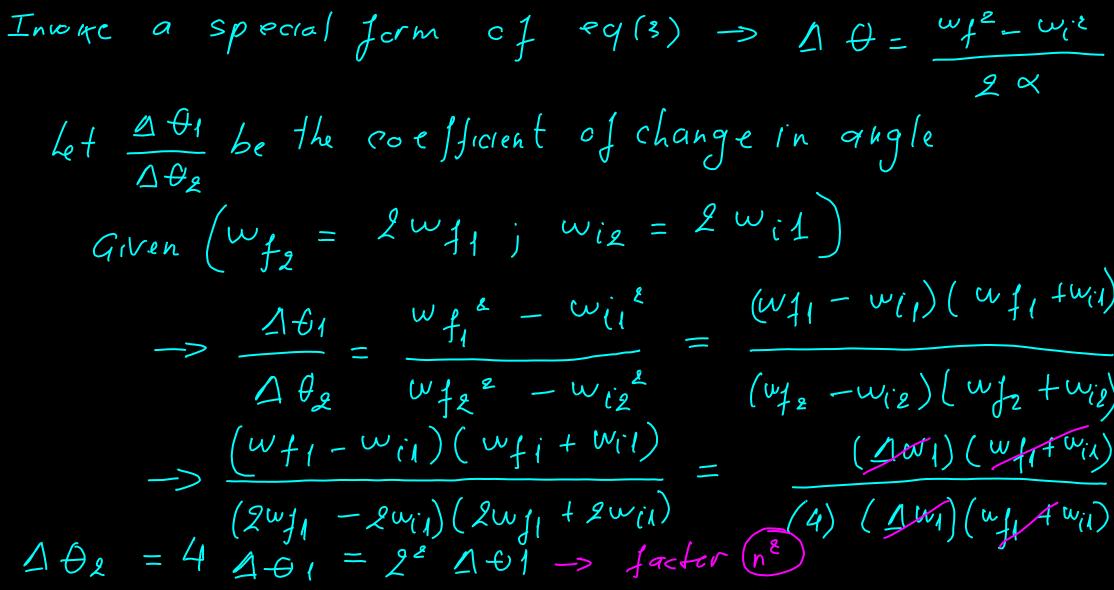 Invoke a special form of eq(3) → Δθ = (ωf² - ωi²) / (2α)
Let Δθ1/Δθ2 be the coefficient of change in angle
Given (ωf2 = 2ωf1 ; ωi2 = 2ωi1)
→ Δθ1/Δθ2 = (ωf1² - ωi1²) / (ωf2² - ωi2²) = (ωf1 - ωi1)(ωf1 + ωi1) / (ωf2 - ωi2)(ωf2 + ωi2)
→ (ωf1 - ωi1)(ωf1 + ωi1) / (2ωf1 - 2ωi1)(2ωf1 + 2ωi1) = (Δω1)(ωf1 + ωi1) / (4)(Δω1)(ωf1 + ωi1)
Δθ2 = 4 Δθ1 = 2² Δθ1 → factor n²